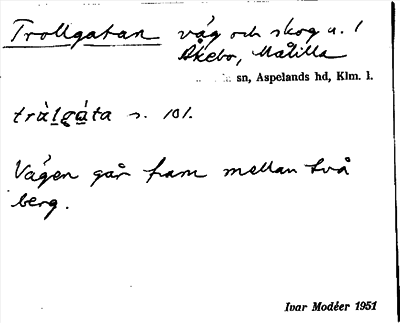 Trollgatan väg och skog u. /
Åkebo, Målilla
sn, Aspelands hd, Klm. l.
tràlgáta s. 101.
Vägen går fram mellan två
berg.
Ivar Modéer 1951